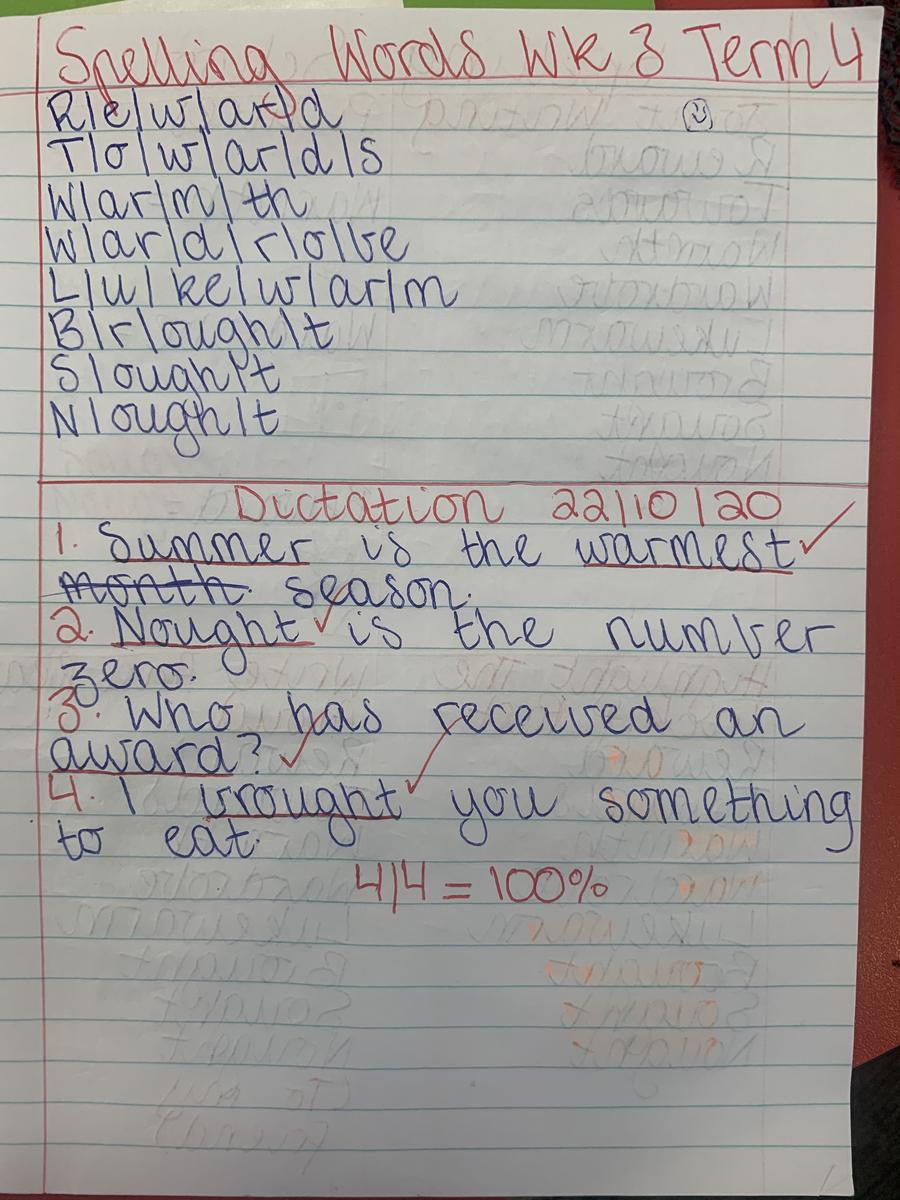 Spelling Words Wk 3 Term 4
R/e/w/ar/d
T/o/w/ar/d/s
W/ar/m/th
W/ar/d/r/o/be
L/u/ke/w/ar/m
B/r/ough/t
S/ough/t
N/ough/t
Dictation 22/10/20
1. Summer is the warmest
month. season.
2. Nought is the number
zero.
3. Who has received an
award?
4. I brought you something
to eat.
4/4 = 100%